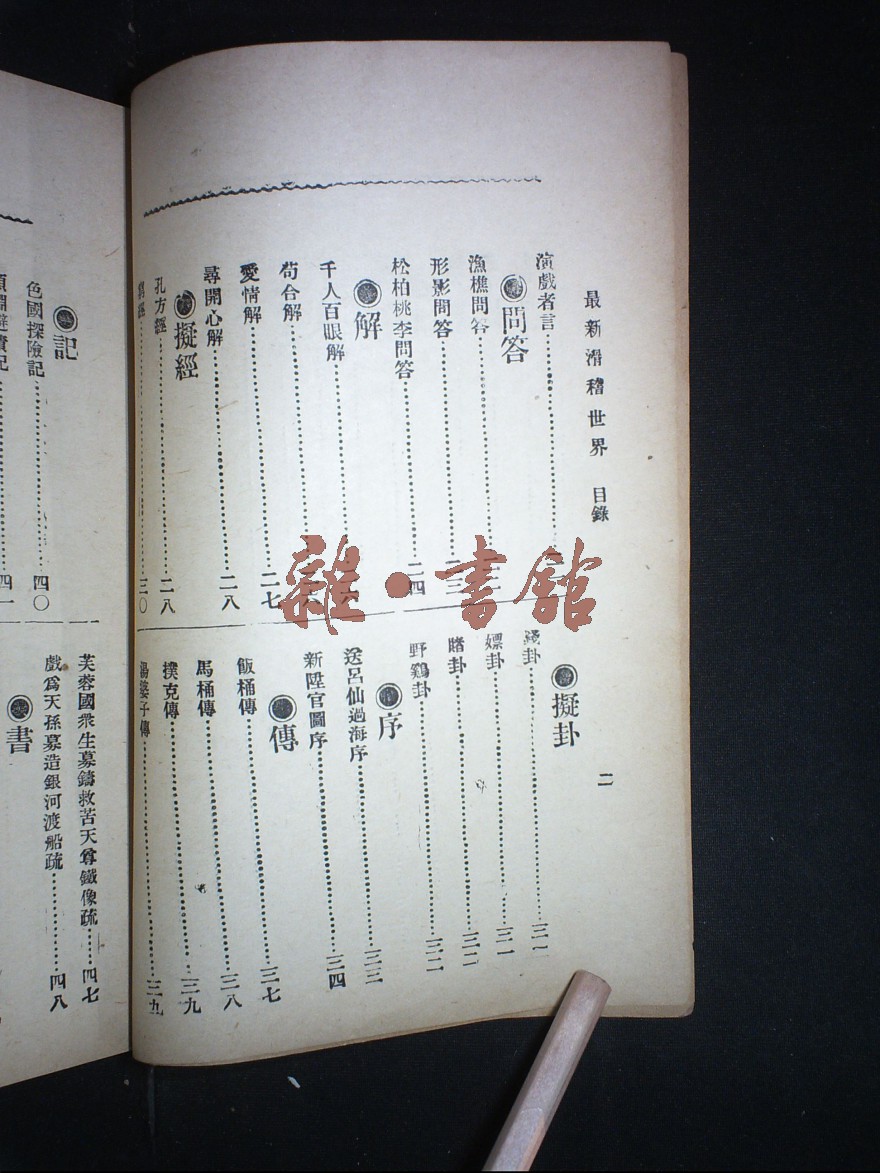 最新滑稽世界 目錄
二
演戲者言
問答
漁樵問答
形影問答……二三
松柏桃李問答……二四
解
千人百眼解
苟合解
愛情解……二七
尋開心解……二八
擬經
孔方經……二八
……三〇
擬卦
錢卦……三一
嫖卦……三一
賭卦……三二
野鷄卦……三二
序
送呂仙過海序……三三
新陞官圖序……三四
傳
飯桶傳……三七
馬桶傳……三八
撲克傳……三九
湯婆子傳……三九
記
色國探險記……四〇
避債記……四一
芙蓉國衆生募鑄救苦天尊鐵像疏……四七
戲爲天孫募造銀河渡船疏……四八
書
雜·書館